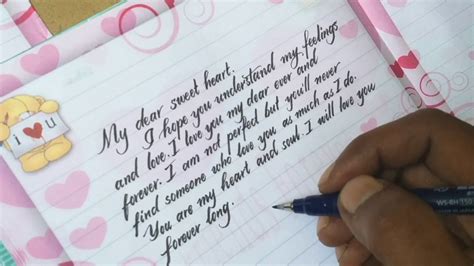 My dear sweet heart,
I hope you understand my feelings
and love. I love you my dear ever and
forever. I am not perfect but you'll never
find someone who love you as much as I do.
You are my heart and soul I will love you
forever long.
i ♥ u